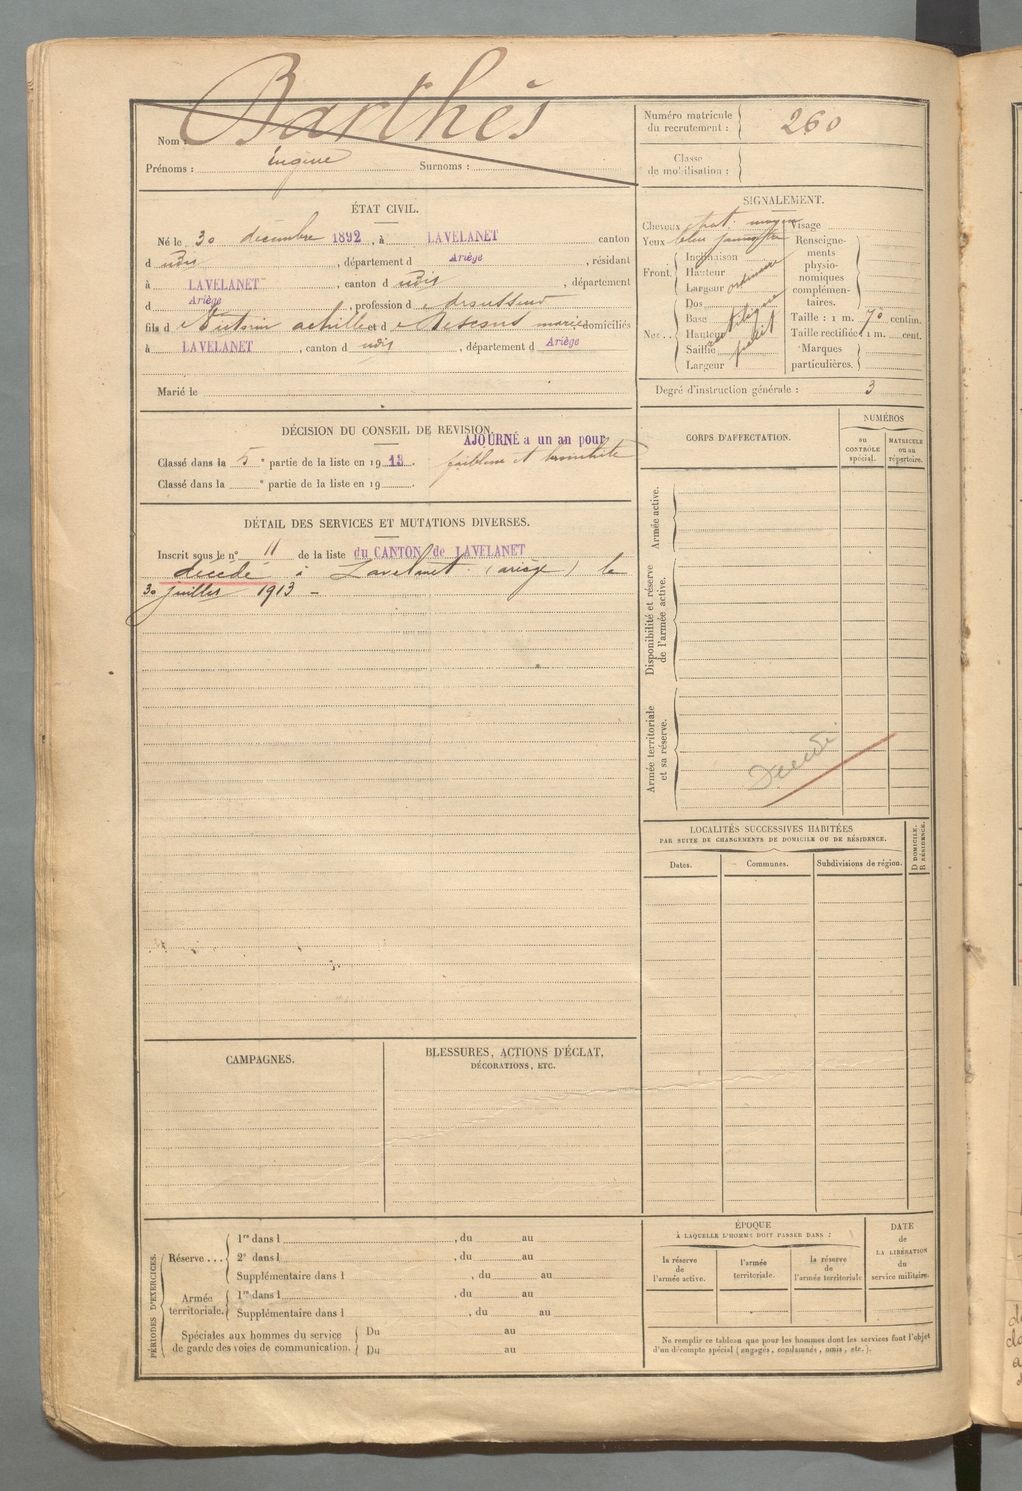 Barthès
Nom :
Prénoms : Eugène Surnoms :
Numéro matricule
du recrutement : 260
Classe
de mobilisation :
ÉTAT CIVIL.
Né le 30 décembre 1892, à LAVELANET canton
d udis, département d Ariège, résidant
à LAVELANET, canton d udis, département
d Ariège, profession de
fils d achille et d mariés domiciliés
à LAVELANET, canton d udis, département d Ariège
Marié le
SIGNALEMENT.
Cheveux chat. moyen Visage
Yeux bleu
Renseigne-
ments
physio-
nomiques
complémen-
taires.
Front.
Inclinaison
Hauteur
Largeur ordinaire
Nez..
Dos
Base
Hauteur
Saillie
Largeur
Taille : 1 m. 70 centim.
Taille rectifiée 1 m. cent.
Marques
particulières.
Degré d'instruction générale : 3
DÉCISION DU CONSEIL DE REVISION.
AJOURNÉ a un an pour
Classé dans la 5e partie de la liste en 1913. faiblesse et bronchite
Classé dans la e partie de la liste en 19 .
DÉTAIL DES SERVICES ET MUTATIONS DIVERSES.
Inscrit sous le n° 11 de la liste du CANTON de LAVELANET
décédé à Lavelanet (ariège) le
30 juillet 1913 -
CORPS D'AFFECTATION.
NUMÉROS
au
CONTRÔLE
spécial.
MATRICULE
ou au
répertoire.
Armée active.
Disponibilité et réserve
de l'armée active.
Armée territoriale
et sa réserve.
Décédé
LOCALITÉS SUCCESSIVES HABITÉES
PAR SUITE DE CHANGEMENTS DE DOMICILE OU DE RÉSIDENCE.
Dates.
Communes.
Subdivisions de région.
D DOMICILE.
R RÉSIDENCE.
CAMPAGNES.
BLESSURES, ACTIONS D'ÉCLAT,
DÉCORATIONS, ETC.
PÉRIODES D'EXERCICES.
Réserve ...
1re dans l , du au
2e dans l , du au
Supplémentaire dans l , du au
Armée
territoriale.
1re dans l , du au
Supplémentaire dans l , du au
Spéciales aux hommes du service
de garde des voies de communication.
Du au
Du au
ÉPOQUE
À LAQUELLE L'HOMME DOIT PASSER DANS :
la réserve
de
l'armée active.
l'armée
territoriale.
la réserve
de
l'armée territoriale
DATE
de
LA LIBÉRATION
du
service militaire.
Ne remplir ce tableau que pour les hommes dont les services font l'objet
d'un décompte spécial (engagés, condamnés, omis, etc.).